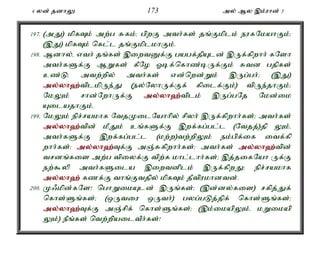 4 லன் தனாலு 173 அல் ஆல இம்ரான் 3
197. (அது) மிகவும் அற்ப சுகம்; பிறகு அவர்கள் தங்குமிடம் நரகமேயாகும்;
(இது) மிகவும் கெட்ட தங்குமிடமாகும்.
198. ஆனால், எவர் தங்கள் இறைவனுக்கு பயபக்தியுடன் இருக்கிறார் களோ
அவர்களுக்கு ஆறுகள் கீழே ஓடிக்கொண்டிருக்கும் சுவன பதிகள்
உண்டு; அவற்றில் அவர்கள் என்றென்றும் இருப்பர்; (இது)
அல்லாஹ்விடமிருந்து (நல்லோருக்குக் கிடைக்கும்) விருந்தாகும்;
மேலும் சான்றோருக்கு அல்லாஹ்விடம் இருப்பதே மேன்மை
யுடையதாகும்.
199. மேலும் நிச்சயமாக வேதமுடையோரில் சிலர் இருக்கிறார்கள்; அவர்கள்
அல்லாஹ்வின் மீதும் உங்களுக்கு இறக்கப்பட்ட (வேதத்)தி லும்,
அவர்களுக்கு இறக்கப்பட்ட (மற்ற)வற்றிலும் நம்பிக்கை வைக்கி
றார்கள்; அல்லாஹ்வுக்கு அஞ்சுகிறார்கள்; அவர்கள் அல்லாஹ்வின்
வசனங்களை அற்ப விலைக்கு விற்க மாட்டார்கள்; இத்தகையோ ருக்கு
நற்கூலி அவர்களுடைய இறைவனிடம் இருக்கிறது; நிச்சயமாக
அல்லாஹ் கணக்கு வாங்குவதில் மிகவும் தீவிரமானவன்.
200. முஃமின்களே! பொறுமையுடன் இருங்கள்; (இன்னல்களை) சகித்துக்
கொள்ளுங்கள்; (ஒருவரை ஒருவர்) பலப்படுத்திக் கொள்ளுங்கள்;
அல்லாஹ்வுக்கு அஞ்சிக் கொள்ளுங்கள்; (இம்மையிலும், மறுமையி
லும்) நீங்கள் வெற்றியடைவீர்கள்!